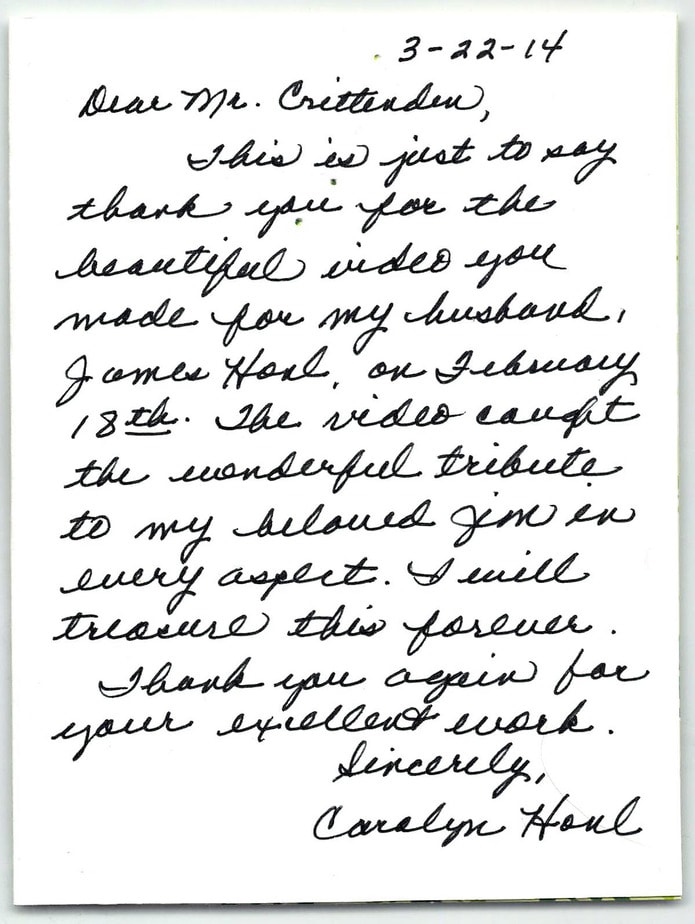 3-22-14
Dear Mr. Crittenden,
This is just to say
thank you for the
beautiful video you
made for my husband,
James Honl, on February
18th. The video caught
the wonderful tribute
to my beloved Jim in
every aspect. I will
treasure this forever.
Thank you again for
your excellent work.
Sincerely,
Carolyn Honl